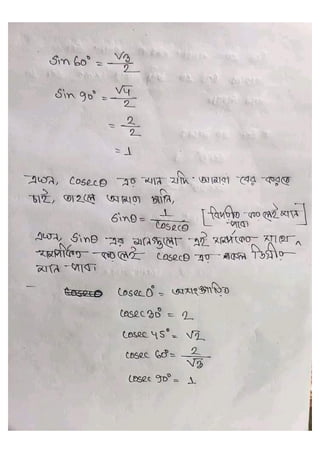 sin 60° = √3/2
sin 90° = √4/2
= 2/2
= 1
এখন, cosecθ এর মান যদি আমরা বের করতে
চাই, তাহলে আমরা জানি,
sinθ = 1/cosecθ [বিপরীত করলেই মান পাব]
এখন, sinθ এর মানগুলো এই সম্পর্কের সাথে
সম্পর্কিত করলেই cosecθ এর সকল ডিগ্রীর
মান পাব।
cosec 0° = অসংজ্ঞায়িত
cosec 30° = 2
cosec 45° = √2
cosec 60° = 2/√3
cosec 90° = 1